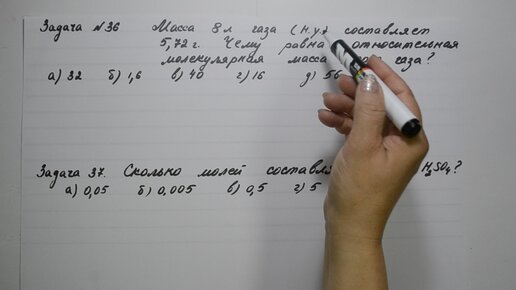 Задача №36 Масса 8 л газа (н.у) составляет
5,72 г. Чему равна относительная
молекулярная масса газа?
а) 32 б) 1,6 в) 40 г) 16 д) 56
Задача 37. Сколько молей H₂SO₄?
а) 0,05 б) 0,005 в) 0,5 г) 5